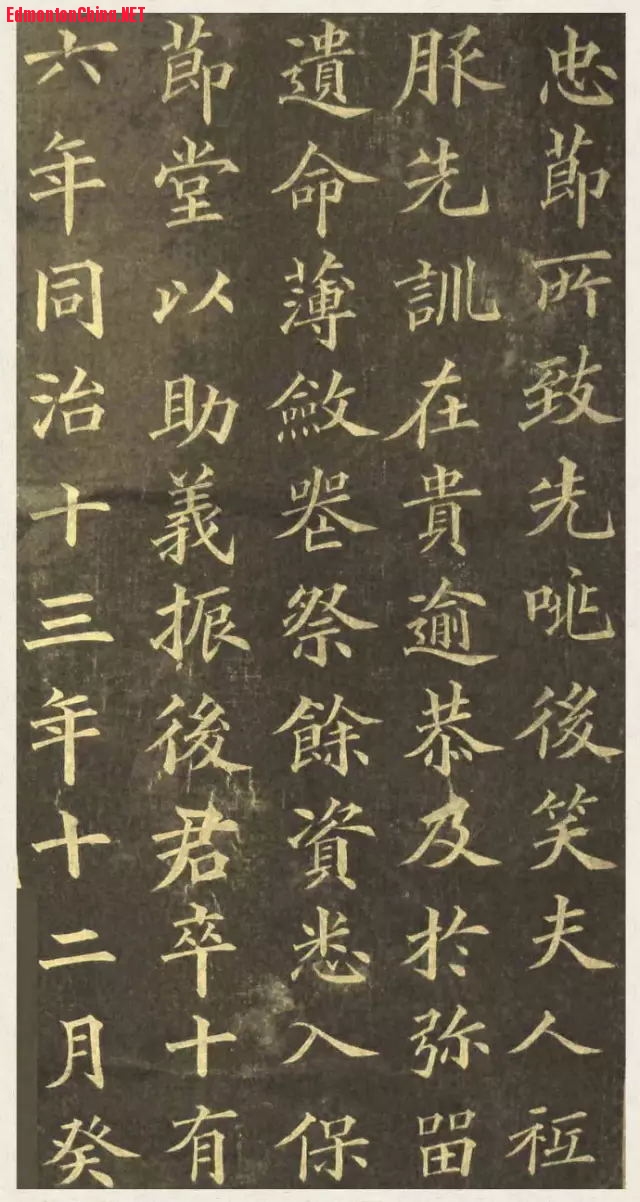 EdmontonChina.NET
忠節所致先咷後笑夫人祗
服先訓在貴逾恭及於弥留
遺命薄斂喪祭餘資悉入保
節堂以助義振後君卒十有
六年同治十三年十二月癸